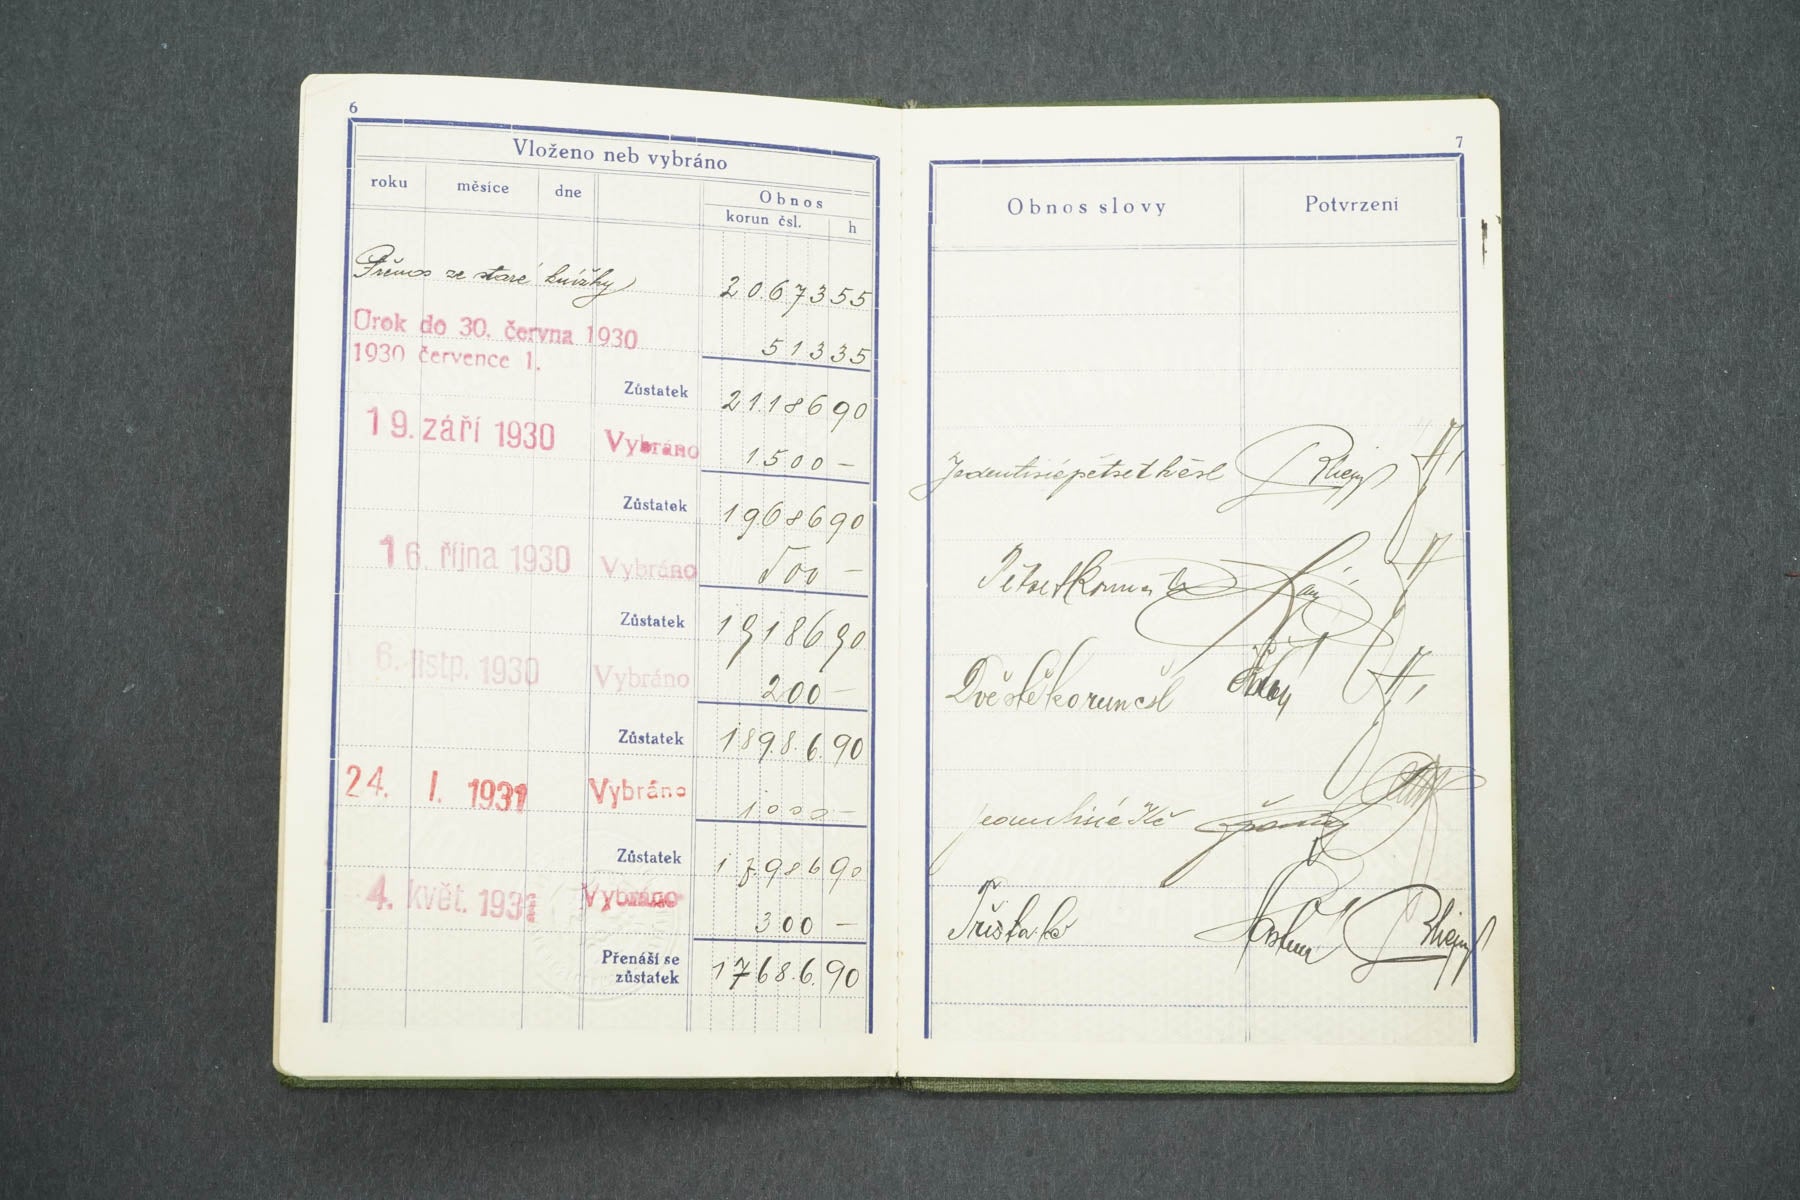 6
Vloženo neb vybráno
roku měsíce dne Obnos
korun čsl. h
Přenos ze staré knížky 20.673 55
Úrok do 30. června 1930
1930 července 1. 513 35
Zůstatek 21.186 90
19. září 1930 Vybráno 1500 —
Zůstatek 19686 90
16. října 1930 Vybráno 500 —
Zůstatek 19186 90
6. listp. 1930 Vybráno 200 —
Zůstatek 189.8.6. 90
24. I. 1931 Vybráno 1000 —
Zůstatek 17.986 90
4. květ. 1931 Vybráno 300 —
Přenáší se
zůstatek 1768.6. 90
7
Obnos slovy Potvrzení
Jedentisícpětset kčsl
Pětset korun
Dvěstě korun čsl
jedentisíc Kč
Třista kč